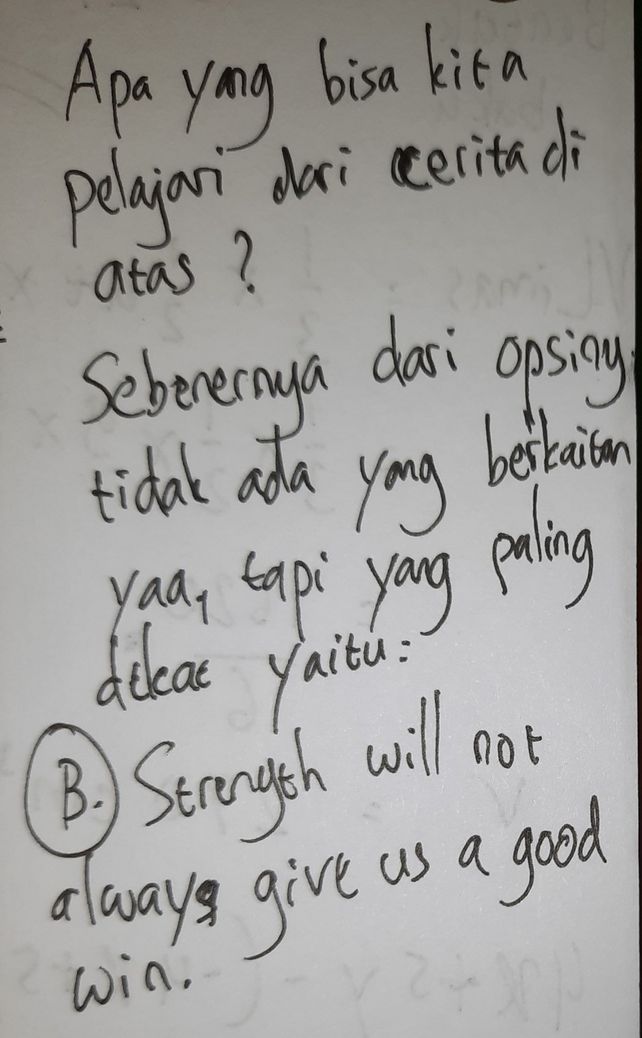 Apa yang bisa kita
pelajari dari cerita di
atas?
Sebenernya dari opsiny
tidak ada yang berkaitan
yaa, tapi yang paling
dekat yaitu:
B. Strength will not
always give us a good
win.